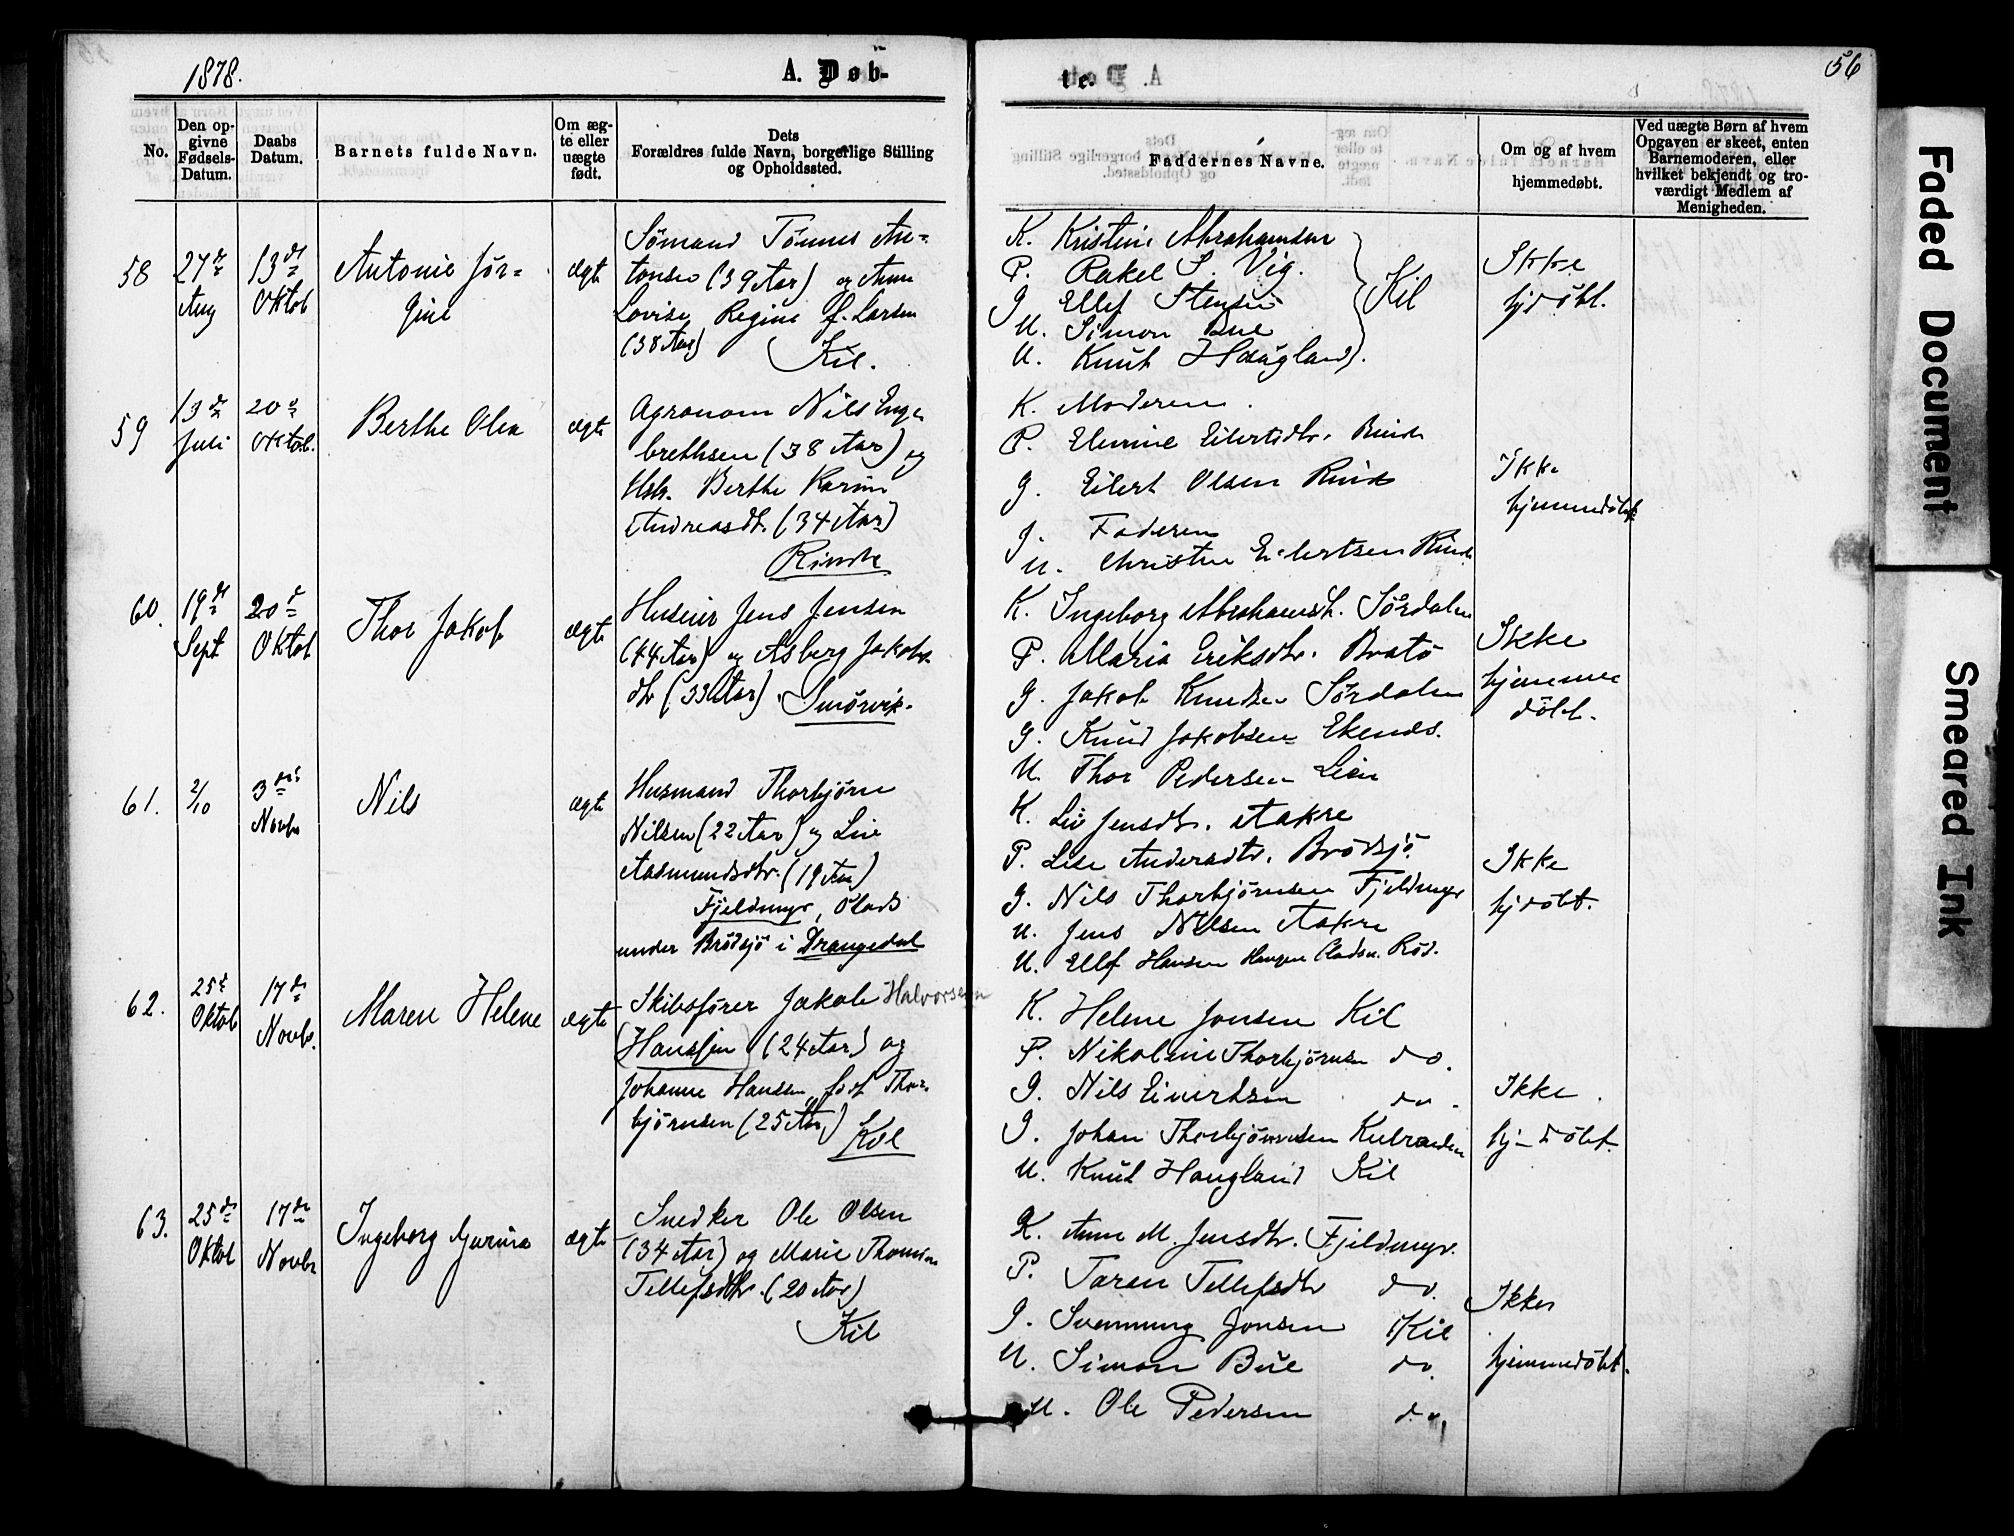 1878.
A. Døb-
te.
56
No.
Den op-
givne
Fødsels-
Datum.
Daabs
Datum.
Barnets fulde Navn.
Om æg-
te eller
uægte
født.
Dets
Forældres fulde Navn, borgerlige Stilling
og Opholdssted.
Faddernes Navne.
Om og af hvem
hjemmedøbt.
Ved uægte Børn af hvem
Opgaven er skeet, enten
Barnemoderen, eller
hvilket bekjendt og tro-
værdigt Medlem af
Menigheden.
58
27de
Aug
13de
Oktob
Antonie Jør-
gine
ægte
Sømand Tønnes An-
tonsen (39 Aar) og Anne
Lovise Regine f. Larsen
(38 Aar)
Kil.
K. Kristine Abrahamsen
P. Rakel S. Vig.
G Ellef Stensen
U. Simon Bue
U. Knut Haugland
Kil
Ikke
hjdøbt.
59
13de
Juli
20de
Oktob.
Berthe Olea
ægte
Agronom Nils Enge
brethsen (38 Aar) og
Hstr. Berthe Karine
Andreasdt. (34 Aar)
Rinde
K. Moderen.
P. Elemine Eilertsdtr. Rinde
G. Eilert Olsen Rinde
G. Faderen
U. Christen Eilertsen Rinde
Ikke
hjemmedøbt
60.
19de
Sept
20de
Oktob
Thor Jakob
ægte
Huseier Jens Jensen
(44 Aar) og Asberg Jakobs
dtr (33 Aar). Smørvik.
K. Ingeborg Abrahamsdt. Sørdalen
P. Maria Eriksdtr. Bratø
G. Jakob Knudsen Sørdalen
G. Knud Jakobsen Ekenæs.
U. Thor Pedersen Lien
Ikke
hjemme
døbt.
61.
2/10
3die
Novbr
Nils
ægte
Husmand Thorbjørn
Nilsen (22 Aar) og Live
Aasmundsdtr. (19 Aar)
Fjeldmyr, Plads
under Brødsjø i Drangedal
K. Liv Jensdtr. Aakre
P. Lise Andersdtr. Brødsjø
G. Nils Thorbjørnsen Fjeldmyr
U. Jens Nilsen Aakre
U. Ellef Hansen Haugen Pladsen. Rød.
Ikke
hjdøbt.
62.
25de
Oktob
17de
Novbr.
Maren Helene
ægte
Skibsfører Jakob Halvorsen
(Hanssen) (24 Aar) og
Johanne Hansen født Thor-
bjørnsen (25 Aar)
Kil
K. Helene Jonsen Kil
P. Nikoline Thorbjørnsen do.
G. Nils Eivertsen do.
G. Johan Thorbjørnsen
U. Knut Haugland Kil
Ikke
hj-døbt.
63.
25de
Oktob
17de
Novbr
Ingeborg
ægte
Snedker Ole Olsen
(34 Aar) og Marie Thomine
Tellefsdtr. (20 Aar)
Kil
K. Anne M. Jensdtr. Fjeldmyr.
P. Taren Tellefsdtr do.
G. Svennung Jonsen Kil
U. Simon Bue do.
U. Ole Pedersen do,
Ikke
hjemmedøbt.
Faded Document
Smeared Ink